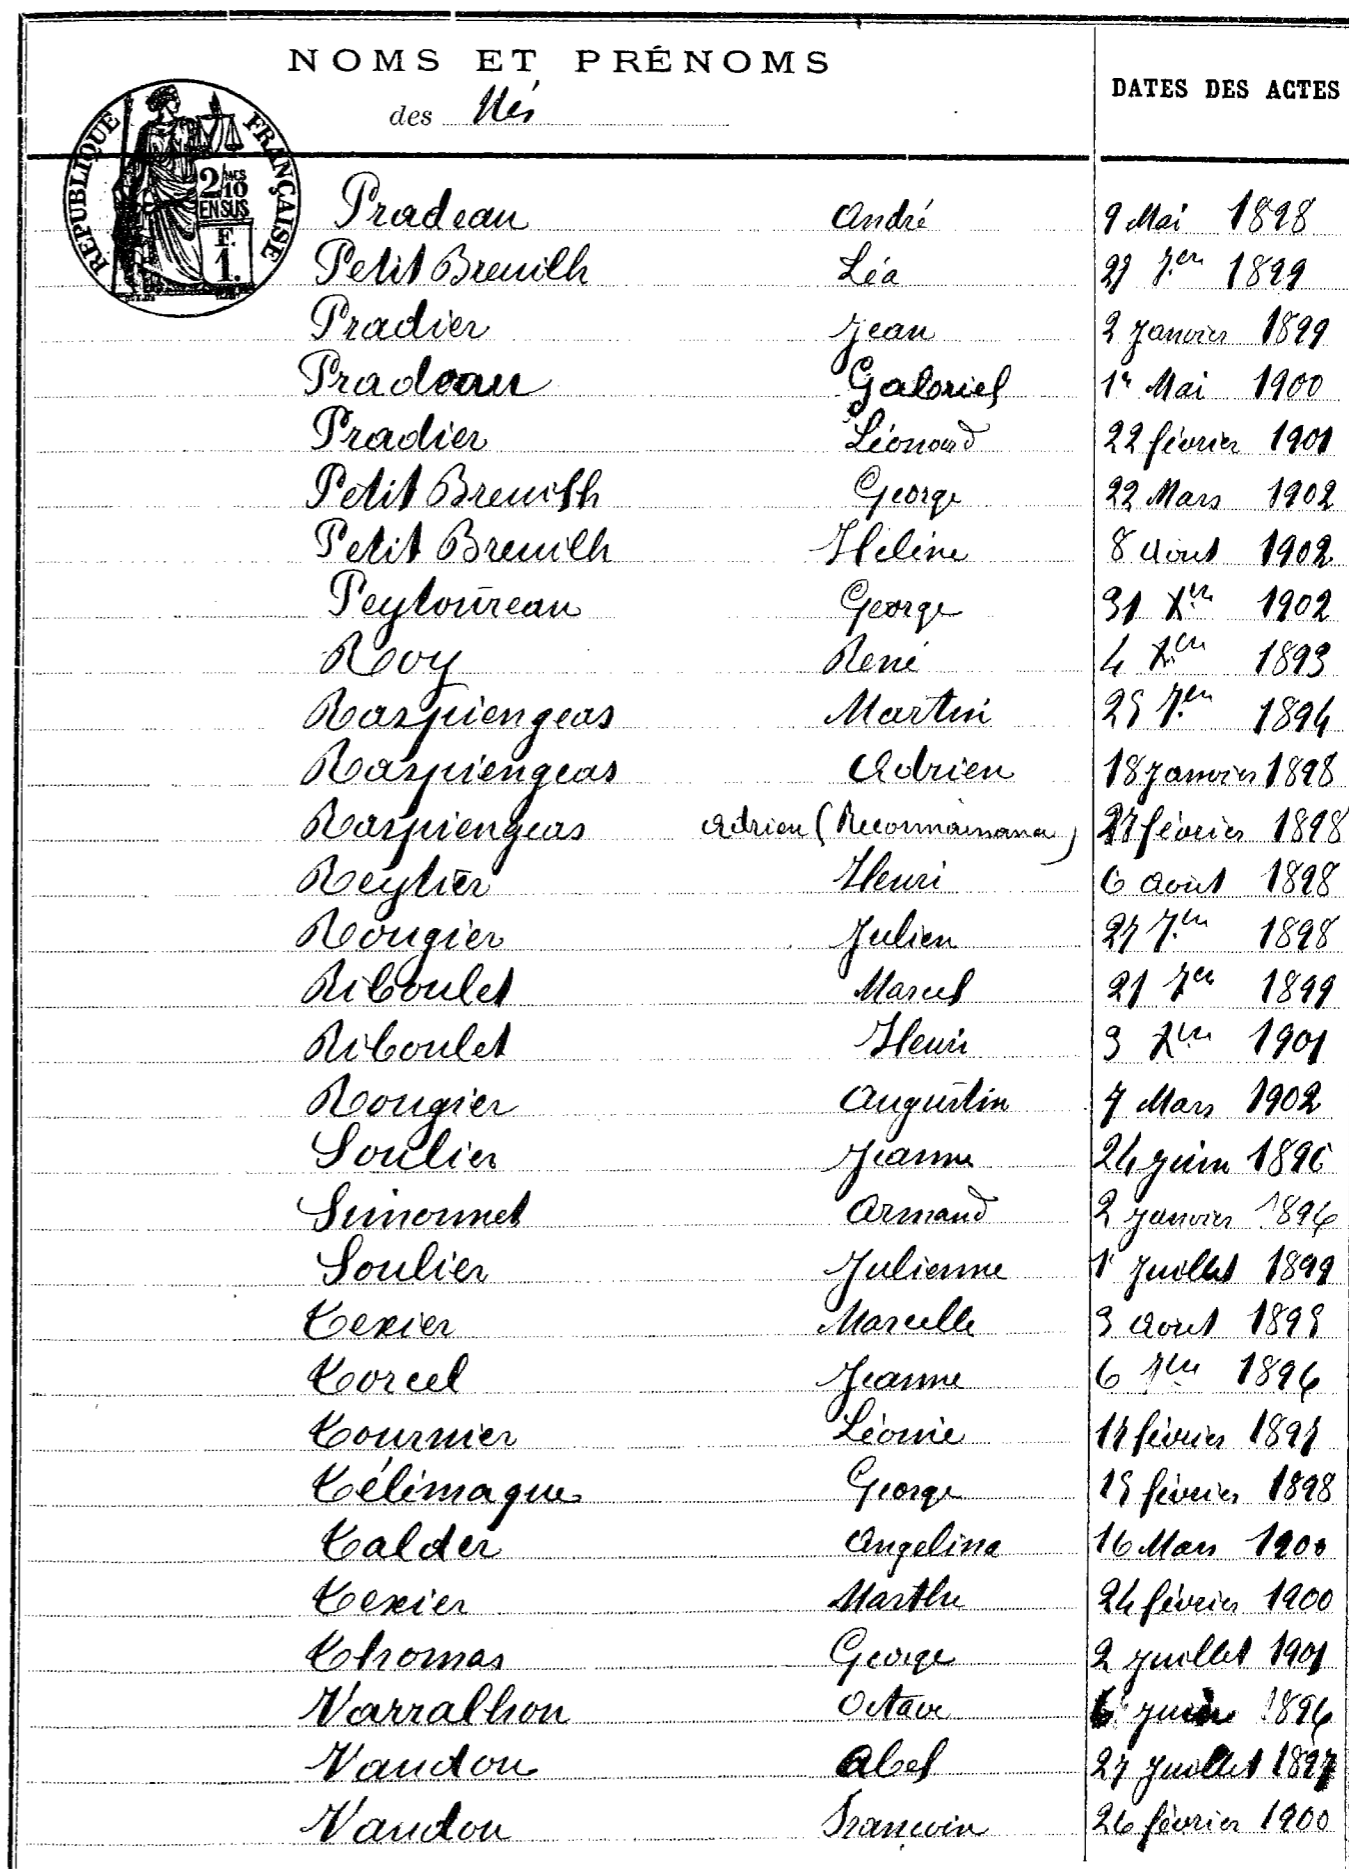 NOMS ET PRÉNOMS
des Nés
DATES DES ACTES
RÉPUBLIQUE FRANÇAISE
2/10
EN SUS
F.
1.
Pradeau André 9 Mai 1898
Petit Breuilh Léa 27 7bre 1899
Pradier Jean 2 Janvier 1899
Pradeau Gabriel 1er Mai 1900
Pradier Léonard 22 février 1901
Petit Breuilh George 22 Mars 1902
Petit Breuilh Hélène 8 Août 1902
Peytoureau George 31 Xbre 1902
Roy René 4 Xbre 1893
Raspiengeas Martin 25 7bre 1894
Raspiengeas Adrien 18 Janvier 1898
Raspiengeas Adrien (Reconnaissance) 27 février 1898
Reytier Henri 6 Août 1898
Rougier Julien 27 7bre 1898
Riboulet Marcel 21 7bre 1899
Riboulet Henri 3 Xbre 1901
Rougier Augustin 7 Mars 1902
Soulier Jeanne 24 Juin 1896
Simonnet Armand 2 Janvier 1896
Soulier Julienne 1er Juillet 1899
Texier Marcelle 3 Aout 1895
Torcel Jeanne 6 1896
Tournier Léonie 17 février 1897
Télémaque George 15 février 1898
Talder Angelina 16 Mars 1900
Texier Marthe 24 février 1900
Thomas George 2 Juillet 1901
Varralhon Octave 6 Juin 1896
Vaudou Abel 27 Juillet 1897
Vaudou François 26 février 1900